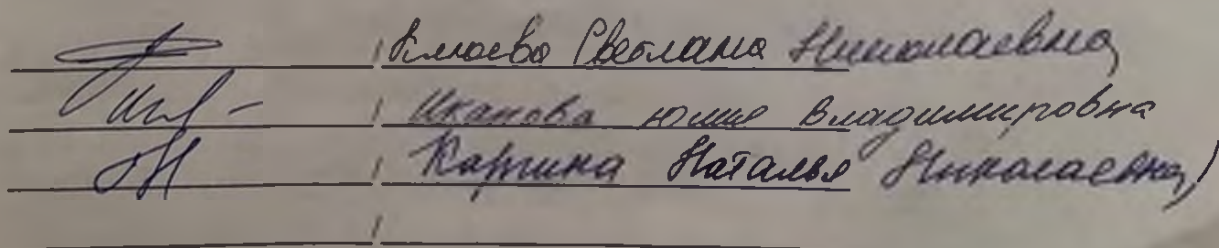 / Клюева Светлана Николаевна
/ Иканова Юлия Владимировна
/ Каргина Наталья Николаевна /
/